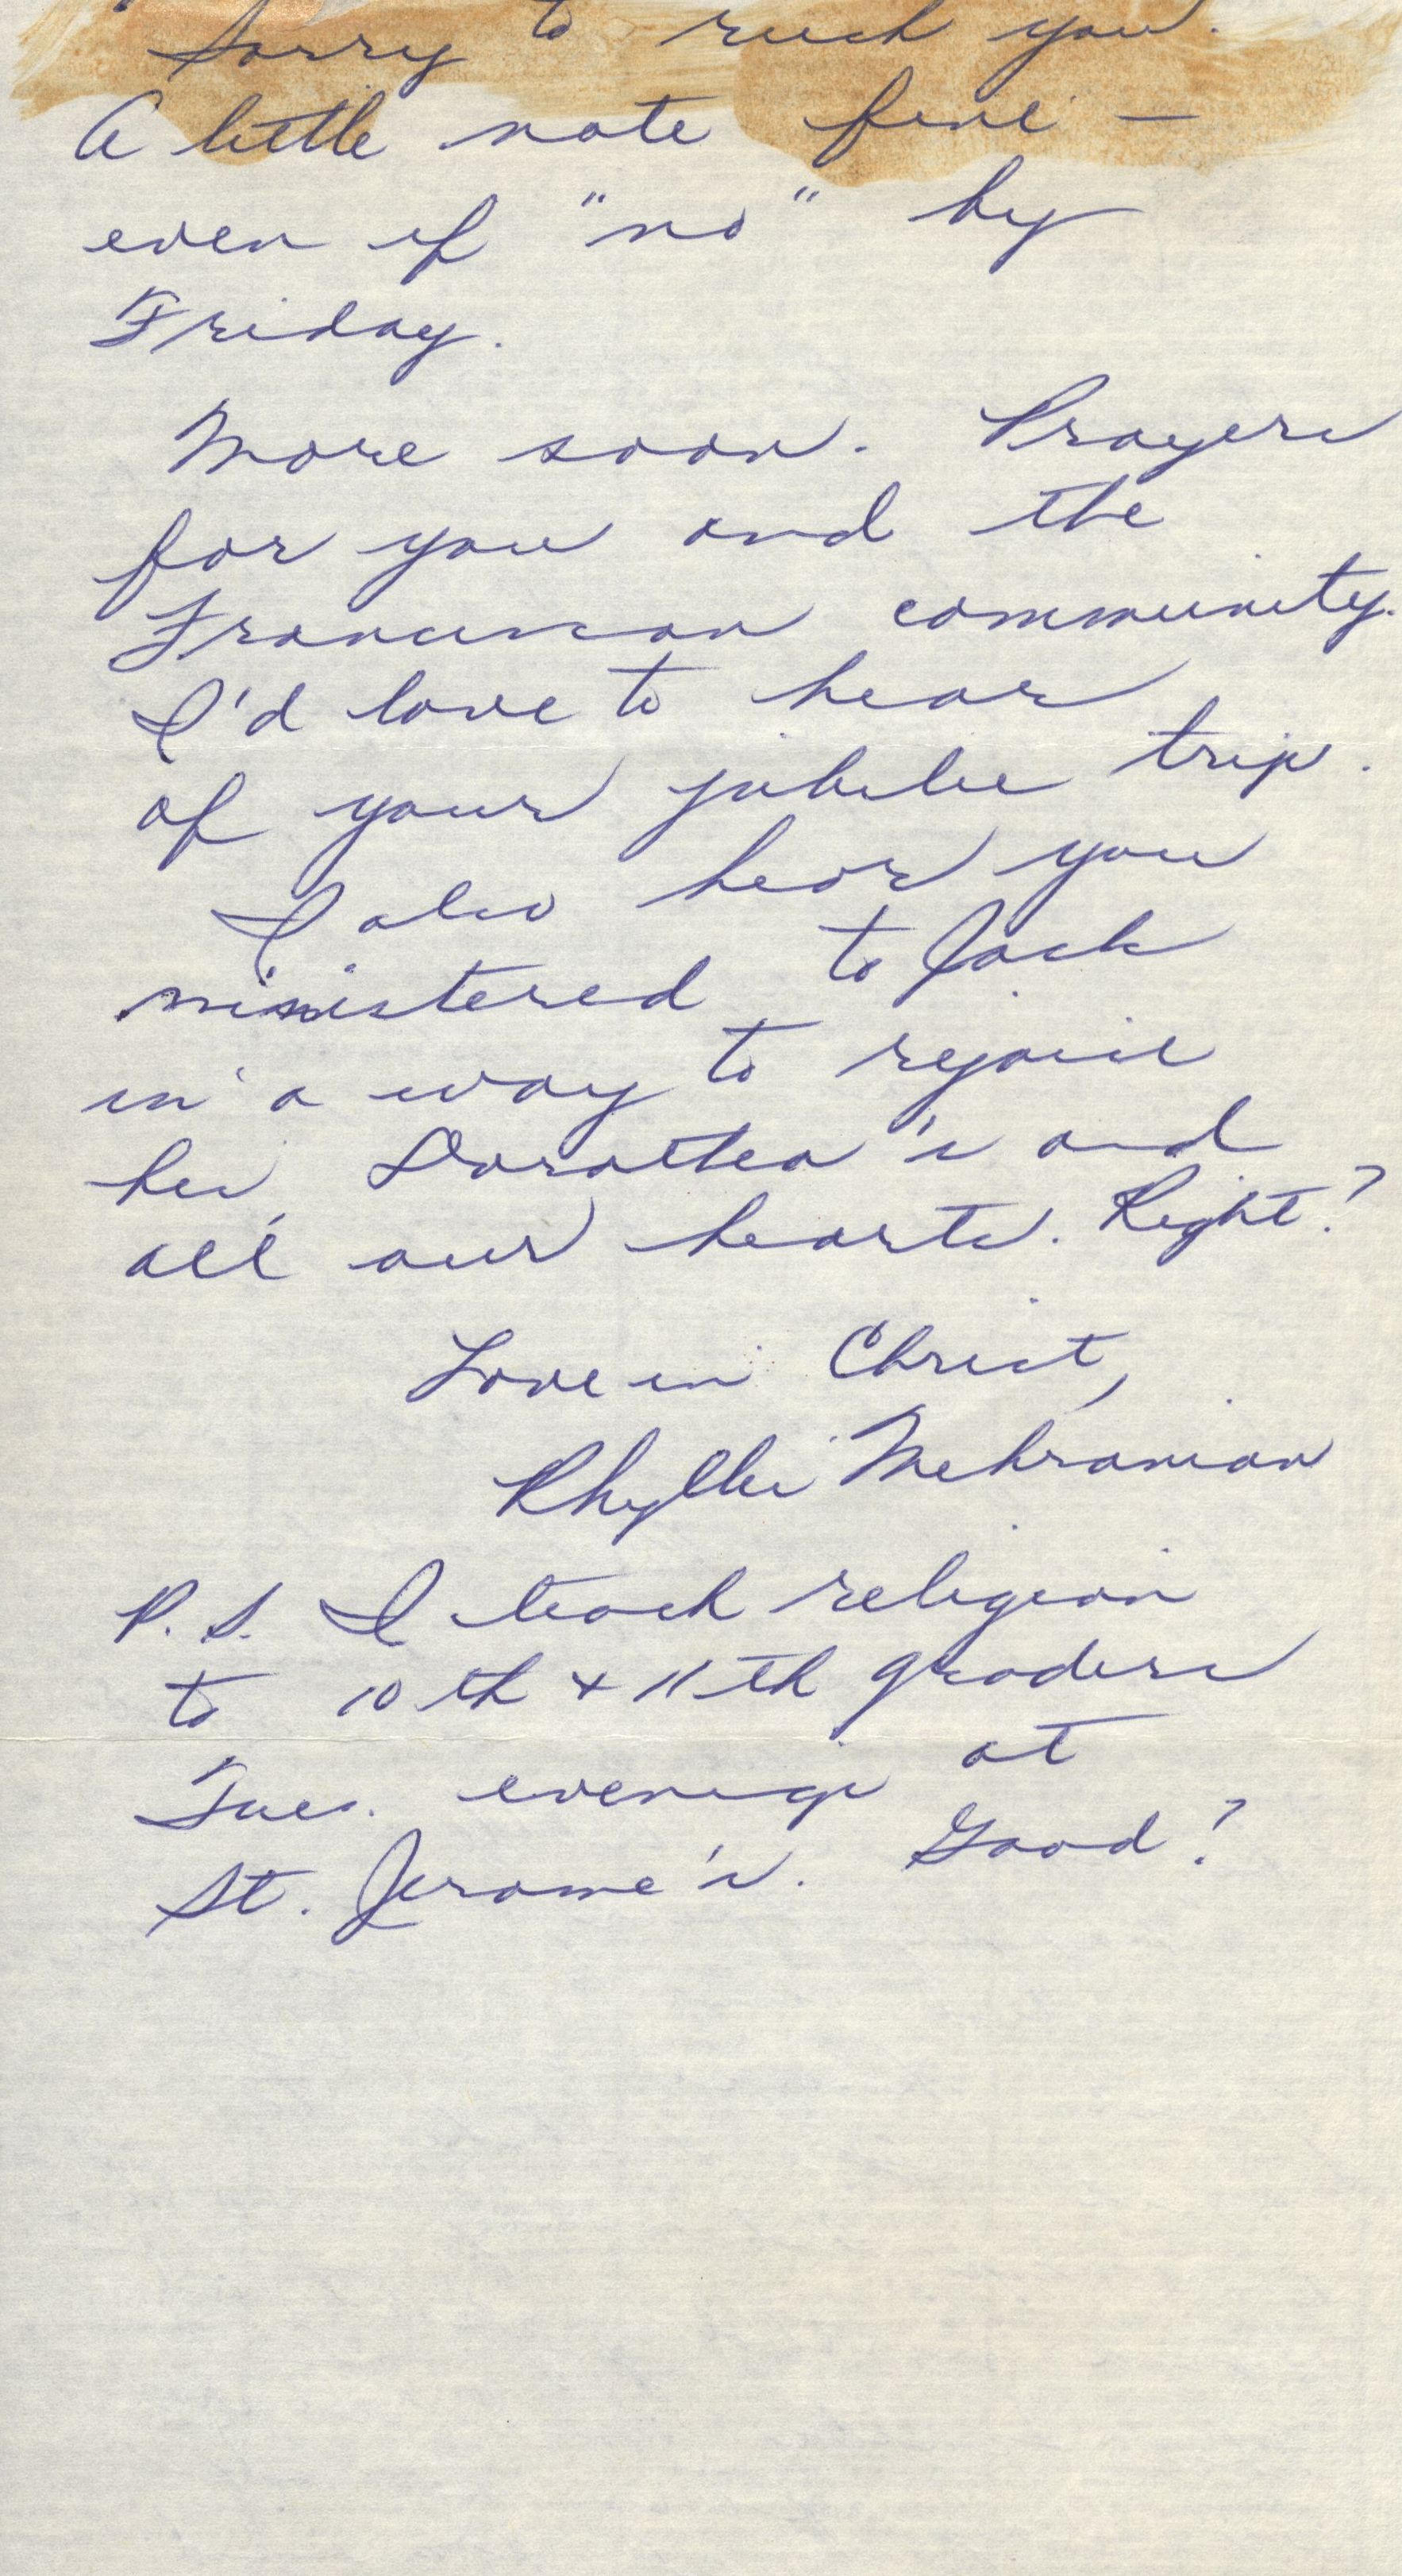 Sorry to rush you.
A little note fine —
even if "no" by
Friday.
More soon. Prayers
for you and the
Franciscan community.
I'd love to hear
of your jubilee trip.
I also hear you
ministered to Jack
in a way to rejoice
his, Dorothea's and
all our hearts. Right?
Love in Christ,
Phyllis Mehranian
P.S. I teach religion
to 10th + 11th graders
Tues. evenigs at
St. Jerome's. Good?